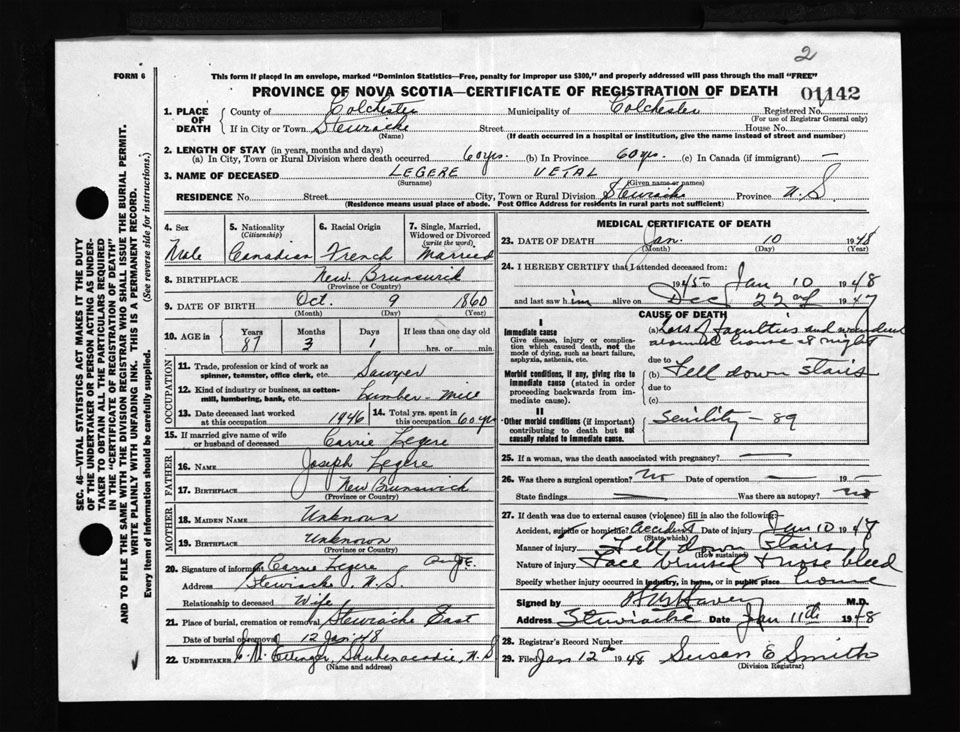 2
FORM 6
This form if placed in an envelope, marked "Dominion Statistics—Free, penalty for improper use $300," and properly addressed will pass through the mail "FREE"
PROVINCE OF NOVA SCOTIA—CERTIFICATE OF REGISTRATION OF DEATH 01142
1. PLACE OF DEATH
County of Colchester Municipality of Colchester Registered No.
(For use of Registrar General only)
If in City or Town Stewiacke Street House No.
(Name) (If death occurred in a hospital or institution, give the name instead of street and number)
2. LENGTH OF STAY (in years, months and days)
(a) In City, Town or Rural Division where death occurred 60 yrs. (b) In Province 60 yrs. (c) In Canada (if immigrant) —
3. NAME OF DECEASED LEGERE VETAL
(Surname) (Given name or names)
RESIDENCE No. Street City, Town or Rural Division Stewiacke Province N.S
(Residence means usual place of abode. Post Office Address for residents in rural parts not sufficient)
4. Sex Male
5. Nationality (Citizenship) Canadian
6. Racial Origin French
7. Single, Married, Widowed or Divorced (write the word) Married
8. BIRTHPLACE New Brunswick
(Province or Country)
9. DATE OF BIRTH Oct. 9 1860
(Month) (Day) (Year)
10. AGE in Years Months Days If less than one day old
87 3 1 hrs. or min.
OCCUPATION
11. Trade, profession or kind of work as spinner, teamster, office clerk, etc. Sawyer
12. Kind of industry or business, as cotton-mill, lumbering, bank, etc. Lumber-mill
13. Date deceased last worked at this occupation 1946
14. Total yrs. spent in this occupation 60 yrs
15. If married give name of wife or husband of deceased Carrie Legere
FATHER
16. Name Joseph Legere
17. Birthplace New Brunswick
(Province or Country)
MOTHER
18. Maiden Name Unknown
19. Birthplace Unknown
(Province or Country)
20. Signature of informant Carrie Legere
Address Stewiacke, N.S.
Relationship to deceased Wife
21. Place of burial, cremation or removal Stewiacke East
Date of burial or removal 12 Jan '48
22. UNDERTAKER Ettinger, Shubenacadie, N.S
(Name and address)
MEDICAL CERTIFICATE OF DEATH
23. DATE OF DEATH Jan. 10 1948
(Month) (Day) (Year)
24. I HEREBY CERTIFY that I attended deceased from:
1945 to Jan 10 1948
and last saw him alive on Dec 22nd 1947
CAUSE OF DEATH
I
Immediate cause
Give disease, injury or complication which caused death, not the mode of dying, such as heart failure, asphyxia, asthenia, etc.
(a) Loss of faculties and wandered around house at night
due to
Morbid conditions, if any, giving rise to immediate cause (stated in order proceeding backwards from immediate cause).
(b) Fell down stairs
due to
(c)
II
Other morbid conditions (if important) contributing to death but not causally related to immediate cause.
Senility - 89
25. If a woman, was the death associated with pregnancy? —
26. Was there a surgical operation? No Date of operation — 19 —
State findings — Was there an autopsy? No
27. If death was due to external causes (violence) fill in also the following—
Accident, suicide or homicide? Accident Date of injury Jan 10 1947
(State which)
Manner of injury Fell down stairs
(How sustained)
Nature of injury Face bruised & nose bleed
Specify whether injury occurred in industry, in home, or in public place home
Signed by M.D.
Address Stewiacke Date Jan 11th 1948
28. Registrar's Record Number
29. Filed Jan 12th 1948 Susan E Smith
(Division Registrar)
SEC. 46—VITAL STATISTICS ACT MAKES IT THE DUTY
OF THE UNDERTAKER OR PERSON ACTING AS UNDER-
TAKER TO OBTAIN ALL THE PARTICULARS REQUIRED
IN THE "CERTIFICATE OF REGISTRATION OF DEATH"
AND TO FILE THE SAME WITH THE DIVISION REGISTRAR WHO SHALL ISSUE THE BURIAL PERMIT.
WRITE PLAINLY WITH UNFADING INK. THIS IS A PERMANENT RECORD.
Every item of information should be carefully supplied. (See reverse side for instructions.)